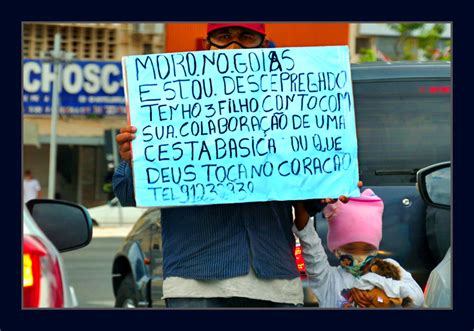 CHOSC
MORO.NO.GOIAS
ESTOU.DESCEPREGADO
TENHO 3 FILHO.CONTOCOM
SUA.COLABORAÇÃO DE UMA
CESTA BASICA OU QUE
DEUS TOCA NO CORACAO
TEL